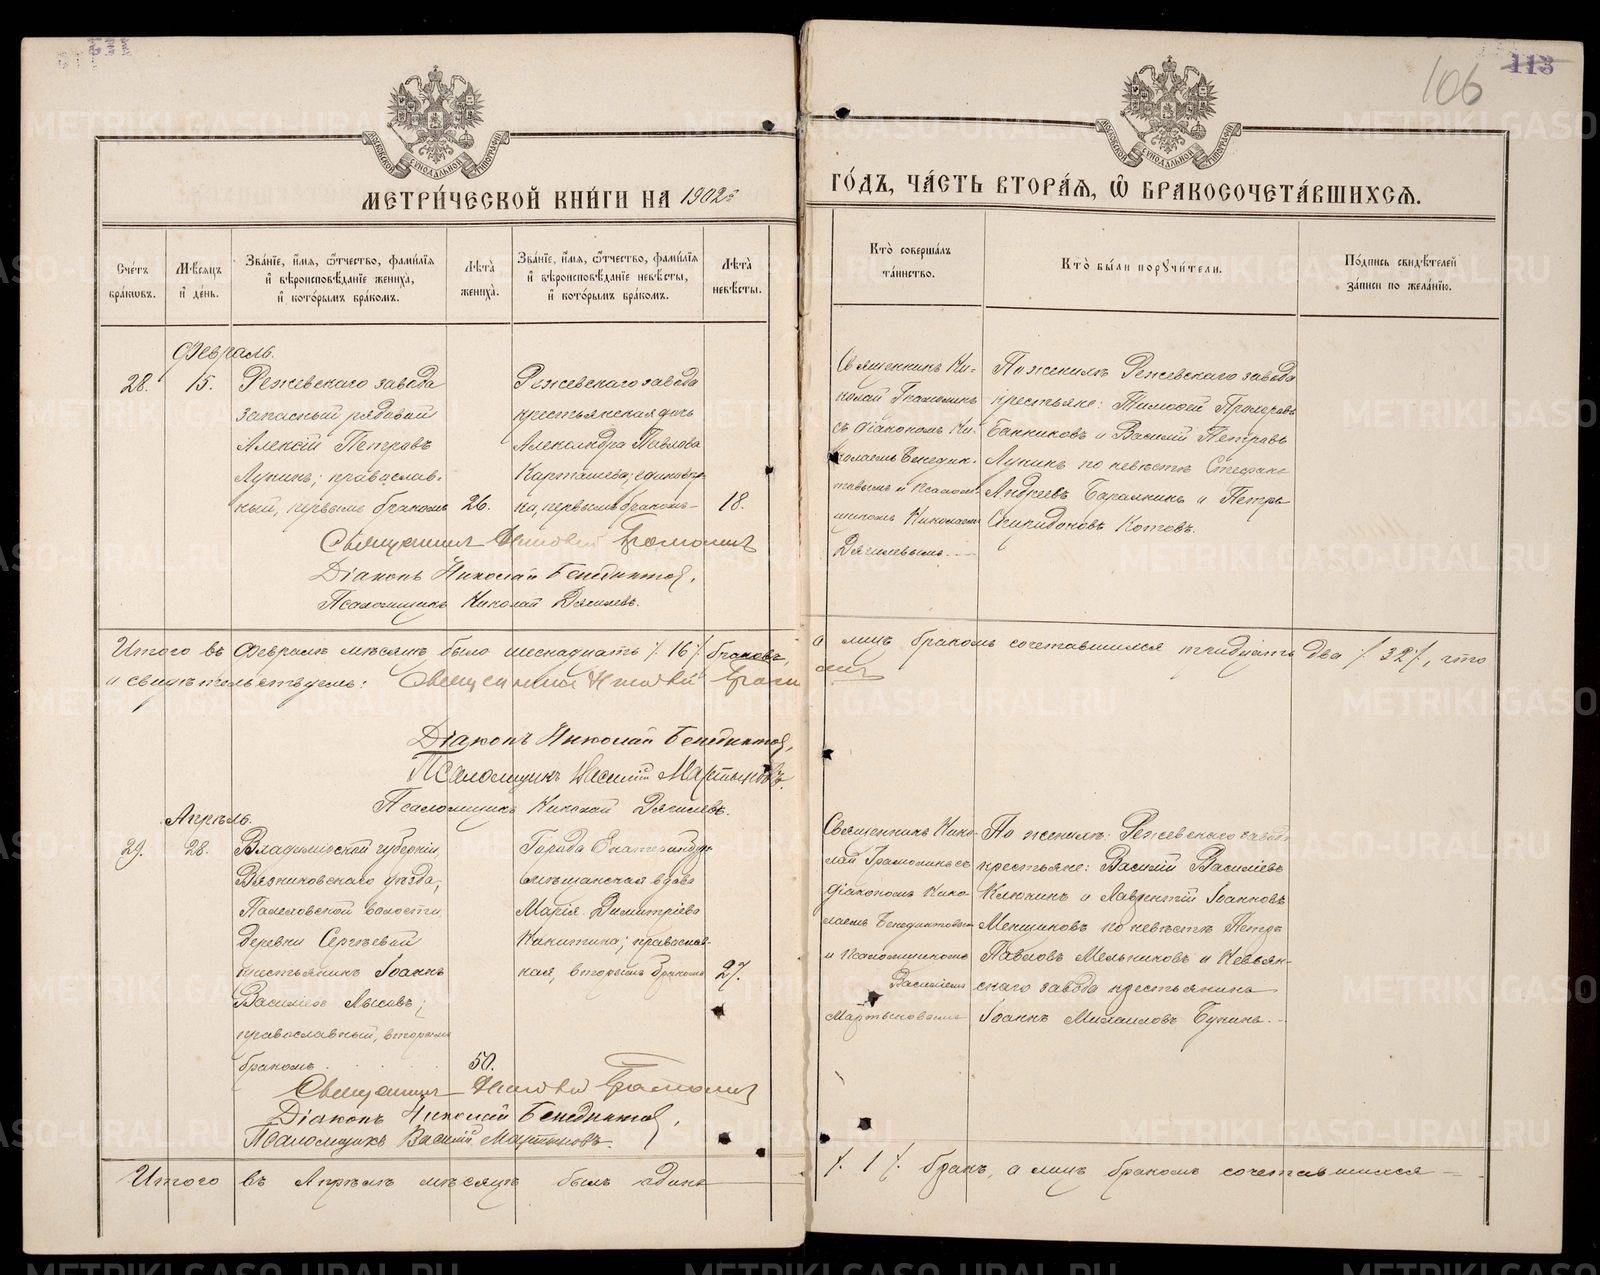 113
106
113
МОСКОВСКОЙ СИНОДАЛЬНОЙ ТИПОГРАФІИ
МОСКОВСКОЙ СИНОДАЛЬНОЙ ТИПОГРАФІИ
МЕТРИ́ЧЕСКОЙ КНИ́ГИ НА 1902й
ГО́ДЪ, ЧА́СТЬ ВТОРА́Ѧ, Ѽ БРАКОСОЧЕТА́ВШИХСѦ.
Сче́тъ бра́кѡвъ.
Мѣ́сяцъ и҆ де́нь.
Зва́нїе, и҆́мѧ, ѻ҆́тчество, фами́лїѧ и҆ вѣроисповѣ́данїе жениха̀, и҆ кото́рымъ бра́комъ.
Лѣ́та жениха̀.
Зва́нїе, и҆́мѧ, ѻ҆́тчество, фами́лїѧ и҆ вѣроисповѣ́данїе невѣ́сты, и҆ кото́рымъ бра́комъ.
Лѣ́та невѣ́сты.
Кто̀ соверша́лъ та́инство.
Кто̀ бы́ли порꙋчи́тели.
По́дпись свидѣ́телей за́писи по жела́нїю.
Февраль.
28.
15.
Режевскаго завода
запасный рядовой
Алексій Петровъ
Лунинъ; православ-
ный, первымъ бракомъ
26.
Режевскаго завода
крестьянская дочь
Александра Павлова
Карташева; единовѣр-
ка, первымъ бракомъ
18.
Священникъ Ни-
колай Грамолинъ
съ діакономъ Ни-
колаемъ Бенедик-
товымъ и псалом-
щикомъ Николаемъ
Дягилевымъ.
По женихѣ Режевскаго завода
крестьяне: Тимофей
Банниковъ и Василій Петровъ
Лунинъ по невѣстѣ Стефанъ
Андреевъ и Петръ
Спиридоновъ Котовъ.
Священникъ Николай Грамолинъ
Діаконъ Николай Бенедиктовъ,
Псаломщикъ Николай Дягилевъ.
Итого въ Февралѣ мѣсяцѣ было шеснадцать /16/ браковъ, а лицъ бракомъ сочетавшихся тридцать два /32/, что
и свидѣтельствуемъ: Священникъ Николай Грамолинъ
Діаконъ Николай Бенедиктовъ,
Псаломщикъ Василій Мартыновъ.
Псаломщикъ Николай Дягилевъ.
Апрѣль.
29.
28.
Владимірской губерніи,
Вязниковскаго уѣзда,
Палеховской волости
деревни Сергѣевой
крестьянинъ Іоаннъ
Василіевъ Лысовъ;
православный, вторымъ
бракомъ.
50.
Города Екатеринбур
мѣщанская вдова
Марія Димитріева
Никитина; православ-
ная, вторымъ бракомъ
27.
Священникъ Нико-
лай Грамолинъ съ
діакономъ Нико-
лаемъ Бенедиктовымъ
и псаломщикомъ
Василіемъ
Мартыновымъ
По женихѣ: Режевскаго завода
крестьяне: Василій Василіевъ
Клюкинъ и Лаврентій Іоанновъ
Меншиковъ по невѣстѣ Петръ
Павловъ Мельниковъ и Невьян-
скаго завода крестьянинъ
Іоаннъ Михаиловъ Бунинъ.
Священникъ Николай Грамолинъ
Діаконъ Николай Бенедиктовъ,
Псаломщикъ Василій Мартыновъ.
Итого въ Апрѣлѣ мѣсяцѣ былъ одинъ /1/ бракъ, а лицъ бракомъ сочетавшихся
METRIKI.GASO-URAL.RU